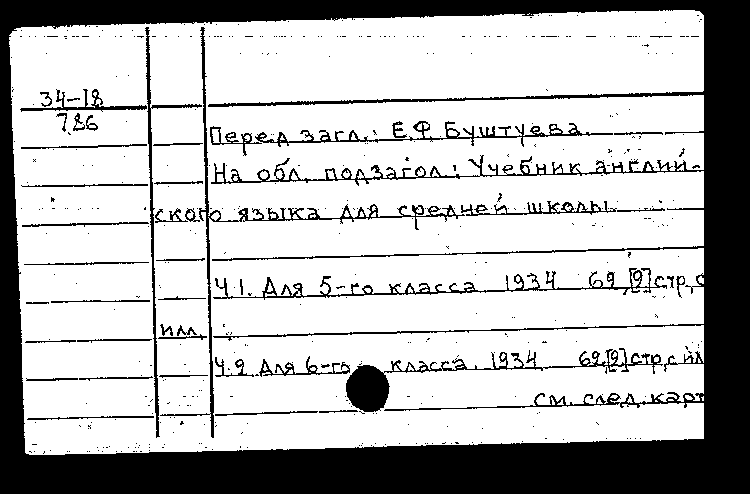 34-18
786
Перед загл.: Е.Ф. Буштуева.
На обл. подзагол.: Учебник англий-
ского языка для средней школы.
Ч.1. Для 5-го класса 1934 69,[2]стр,с
илл.
Ч.2. Для 6-го класса. 1934 69,[2]стр,с ил
см. след. карт